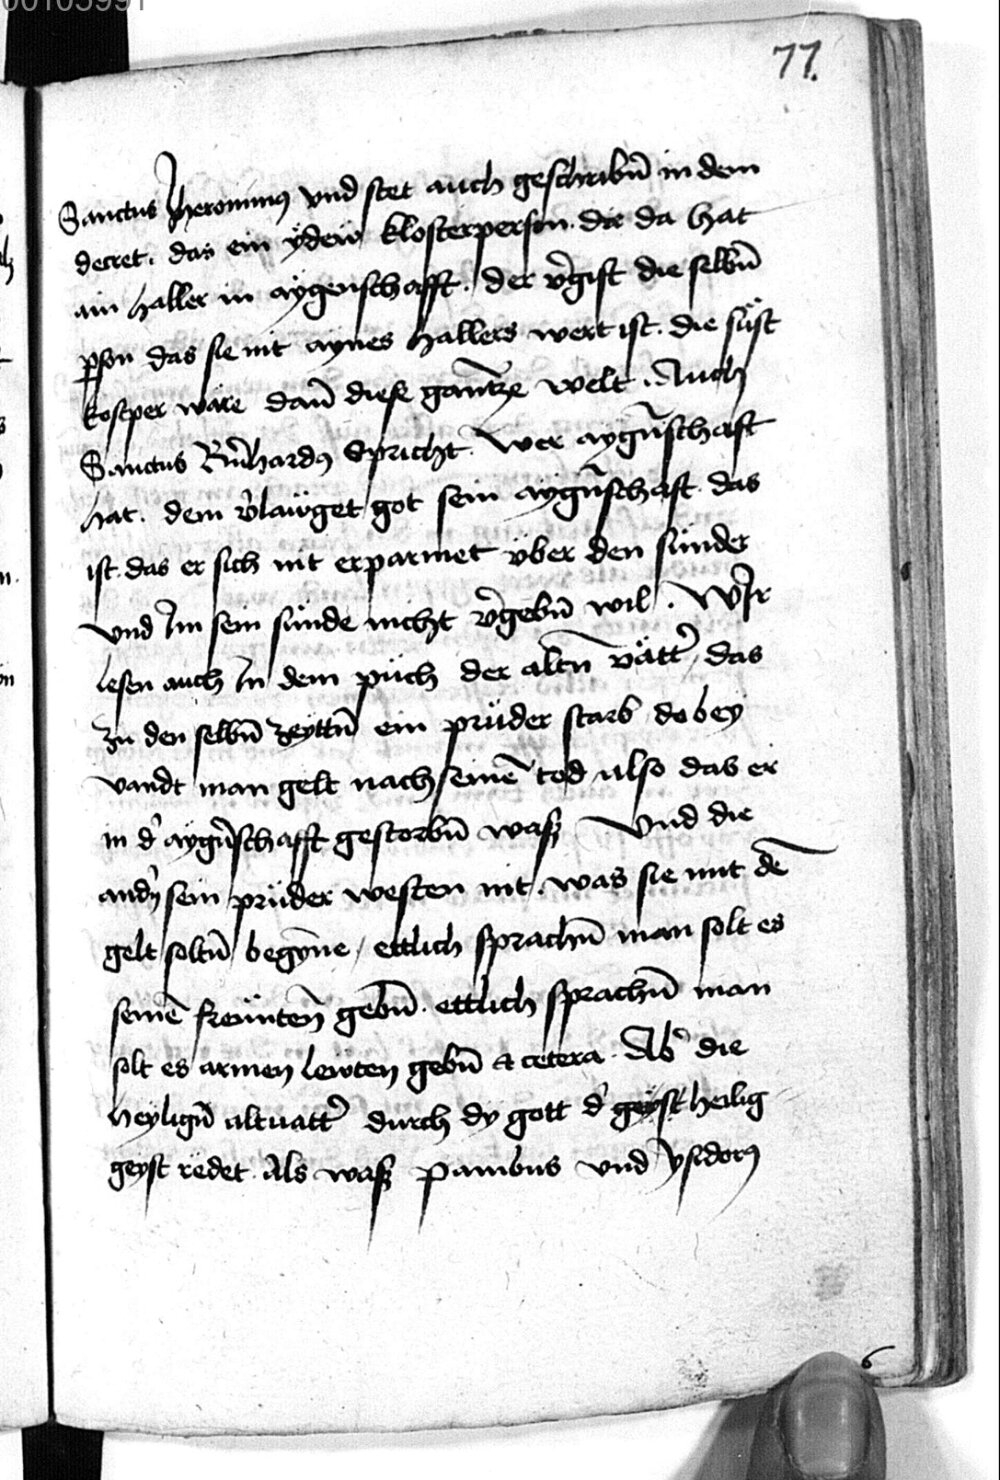 00105991
77.
Sanctus Jheronimus vnd stet auch geschribn̄ in dem
decret. das ein ÿdew klosterperson. die da hat
ain haller in aygenschafft. der v̓gist die selbn̄
ꝑson das sie nit aynes hallers wert ist. die süst
kostper wäre dan̄ diese gantze welt. Auch
Sanctus Bn̄hardus Spricht. Wer aygn̄schaft
hat. dem v̓lawget got sein aygn̄schaft. das
ist. das er sich nit erparmet über den sünder
vnd Im sein sünde nicht v̓gebn̄ wil. Wir
lesen auch In dem püch der altn̄ vätt̓ das
zu den selbn̄ zeyttn̄ ein prüder starb do bey
vandt man gelt nach seinē tod also das er
in d̓ aygn̄schafft gestorbn̄ wasz Vnd die
andn̄ sein prüder westen nit. was sie mit dē
gelt soltn̄ begȳne / ettlich sprachn̄ man solt es
seinē freüntēn gebn̄. ettlich sprachn̄ man
solt es armen lewten gebn̄ et cetera. Ab̓ die
heylign̄ altuatt̓ durch dy gott d̓ geyst heilig
geyst redet. Als wasz Pambus vnd ysidorus
6